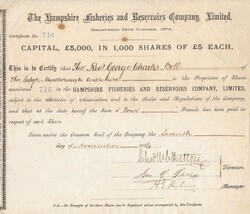 The Hampshire Fisheries and Reservoirs Company, Limited.
REGISTERED 24TH OCTOBER, 1874.
Certificate No. 716
CAPITAL, £5,000, IN 1,000 SHARES OF £5 EACH,
This is to Certify that The Rev George Charles Bell
of The Lodge, Marlborough, Wiltshire is the Proprietor of Share
numbered 716 in the HAMPSHIRE FISHERIES AND RESERVOIRS COMPANY, LIMITED,
subject to the Articles of Association and to the Rules and Regulations of the Company,
and that at the date hereof the Sum of Four Pounds has been paid in
respect of such Share.
Given under the Common Seal of the Company, the Seventh
day of November 187
Directors
Manager
N.B. No Transfer of the above Shares can be registered unless accompanied by this Certificate